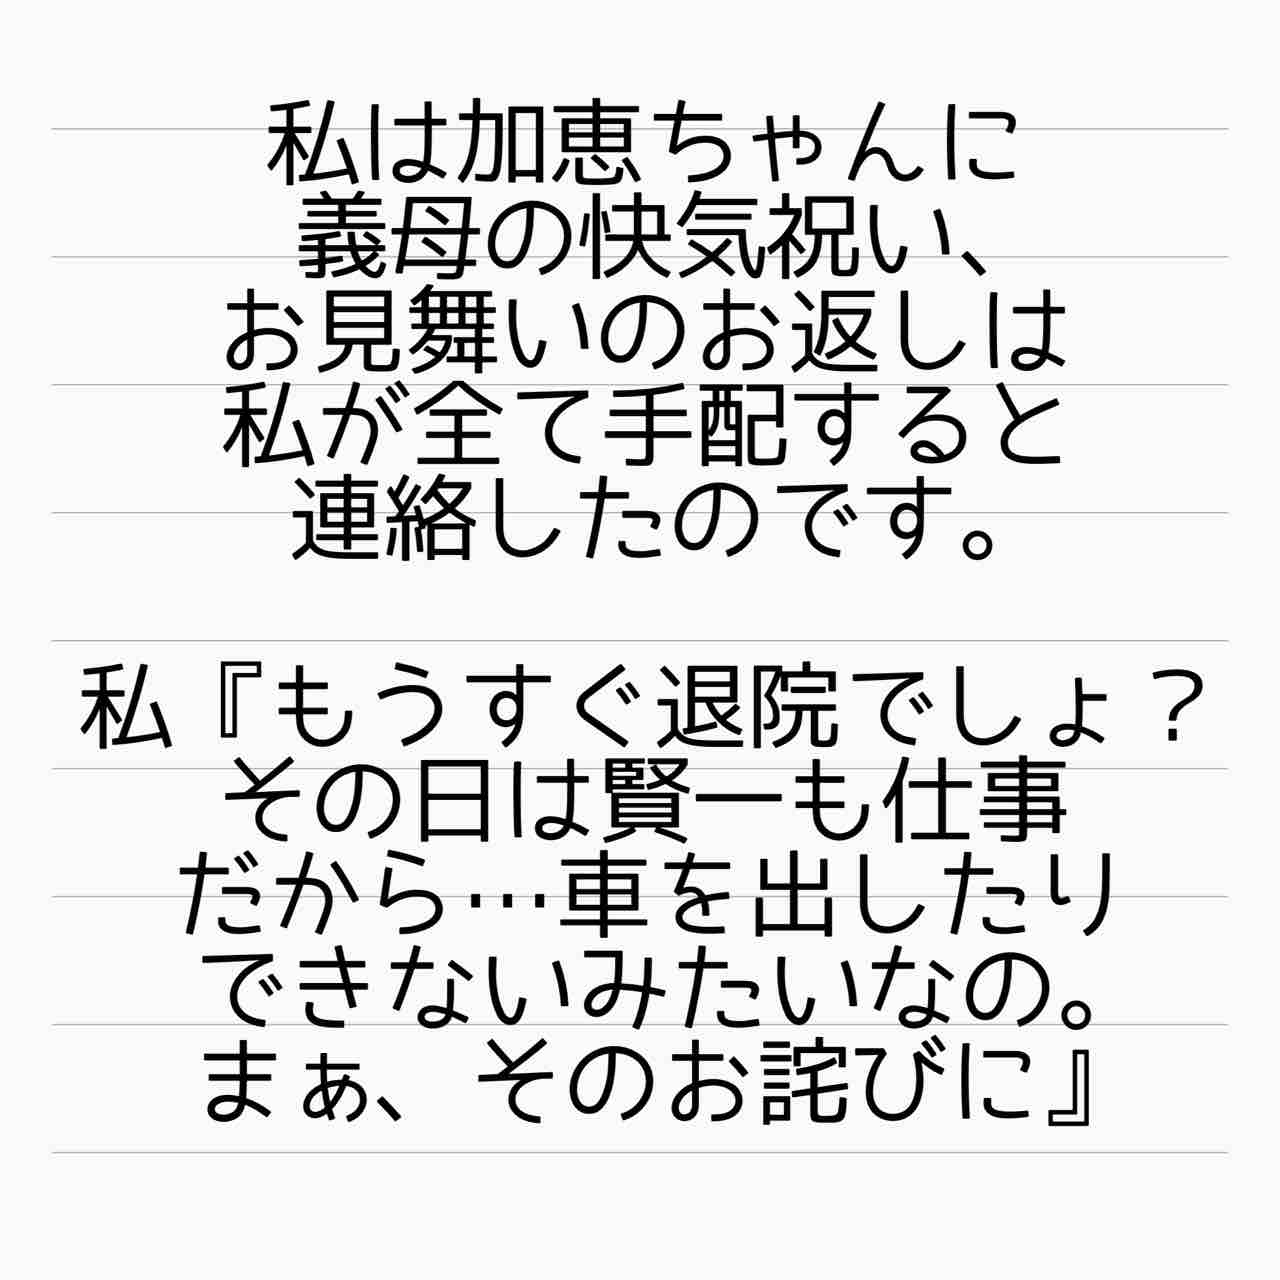 私は加恵ちゃんに
義母の快気祝い、
お見舞いのお返しは
私が全て手配すると
連絡したのです。
私『もうすぐ退院でしょ？
その日は賢一も仕事
だから…車を出したり
できないみたいなの。
まぁ、そのお詫びに』